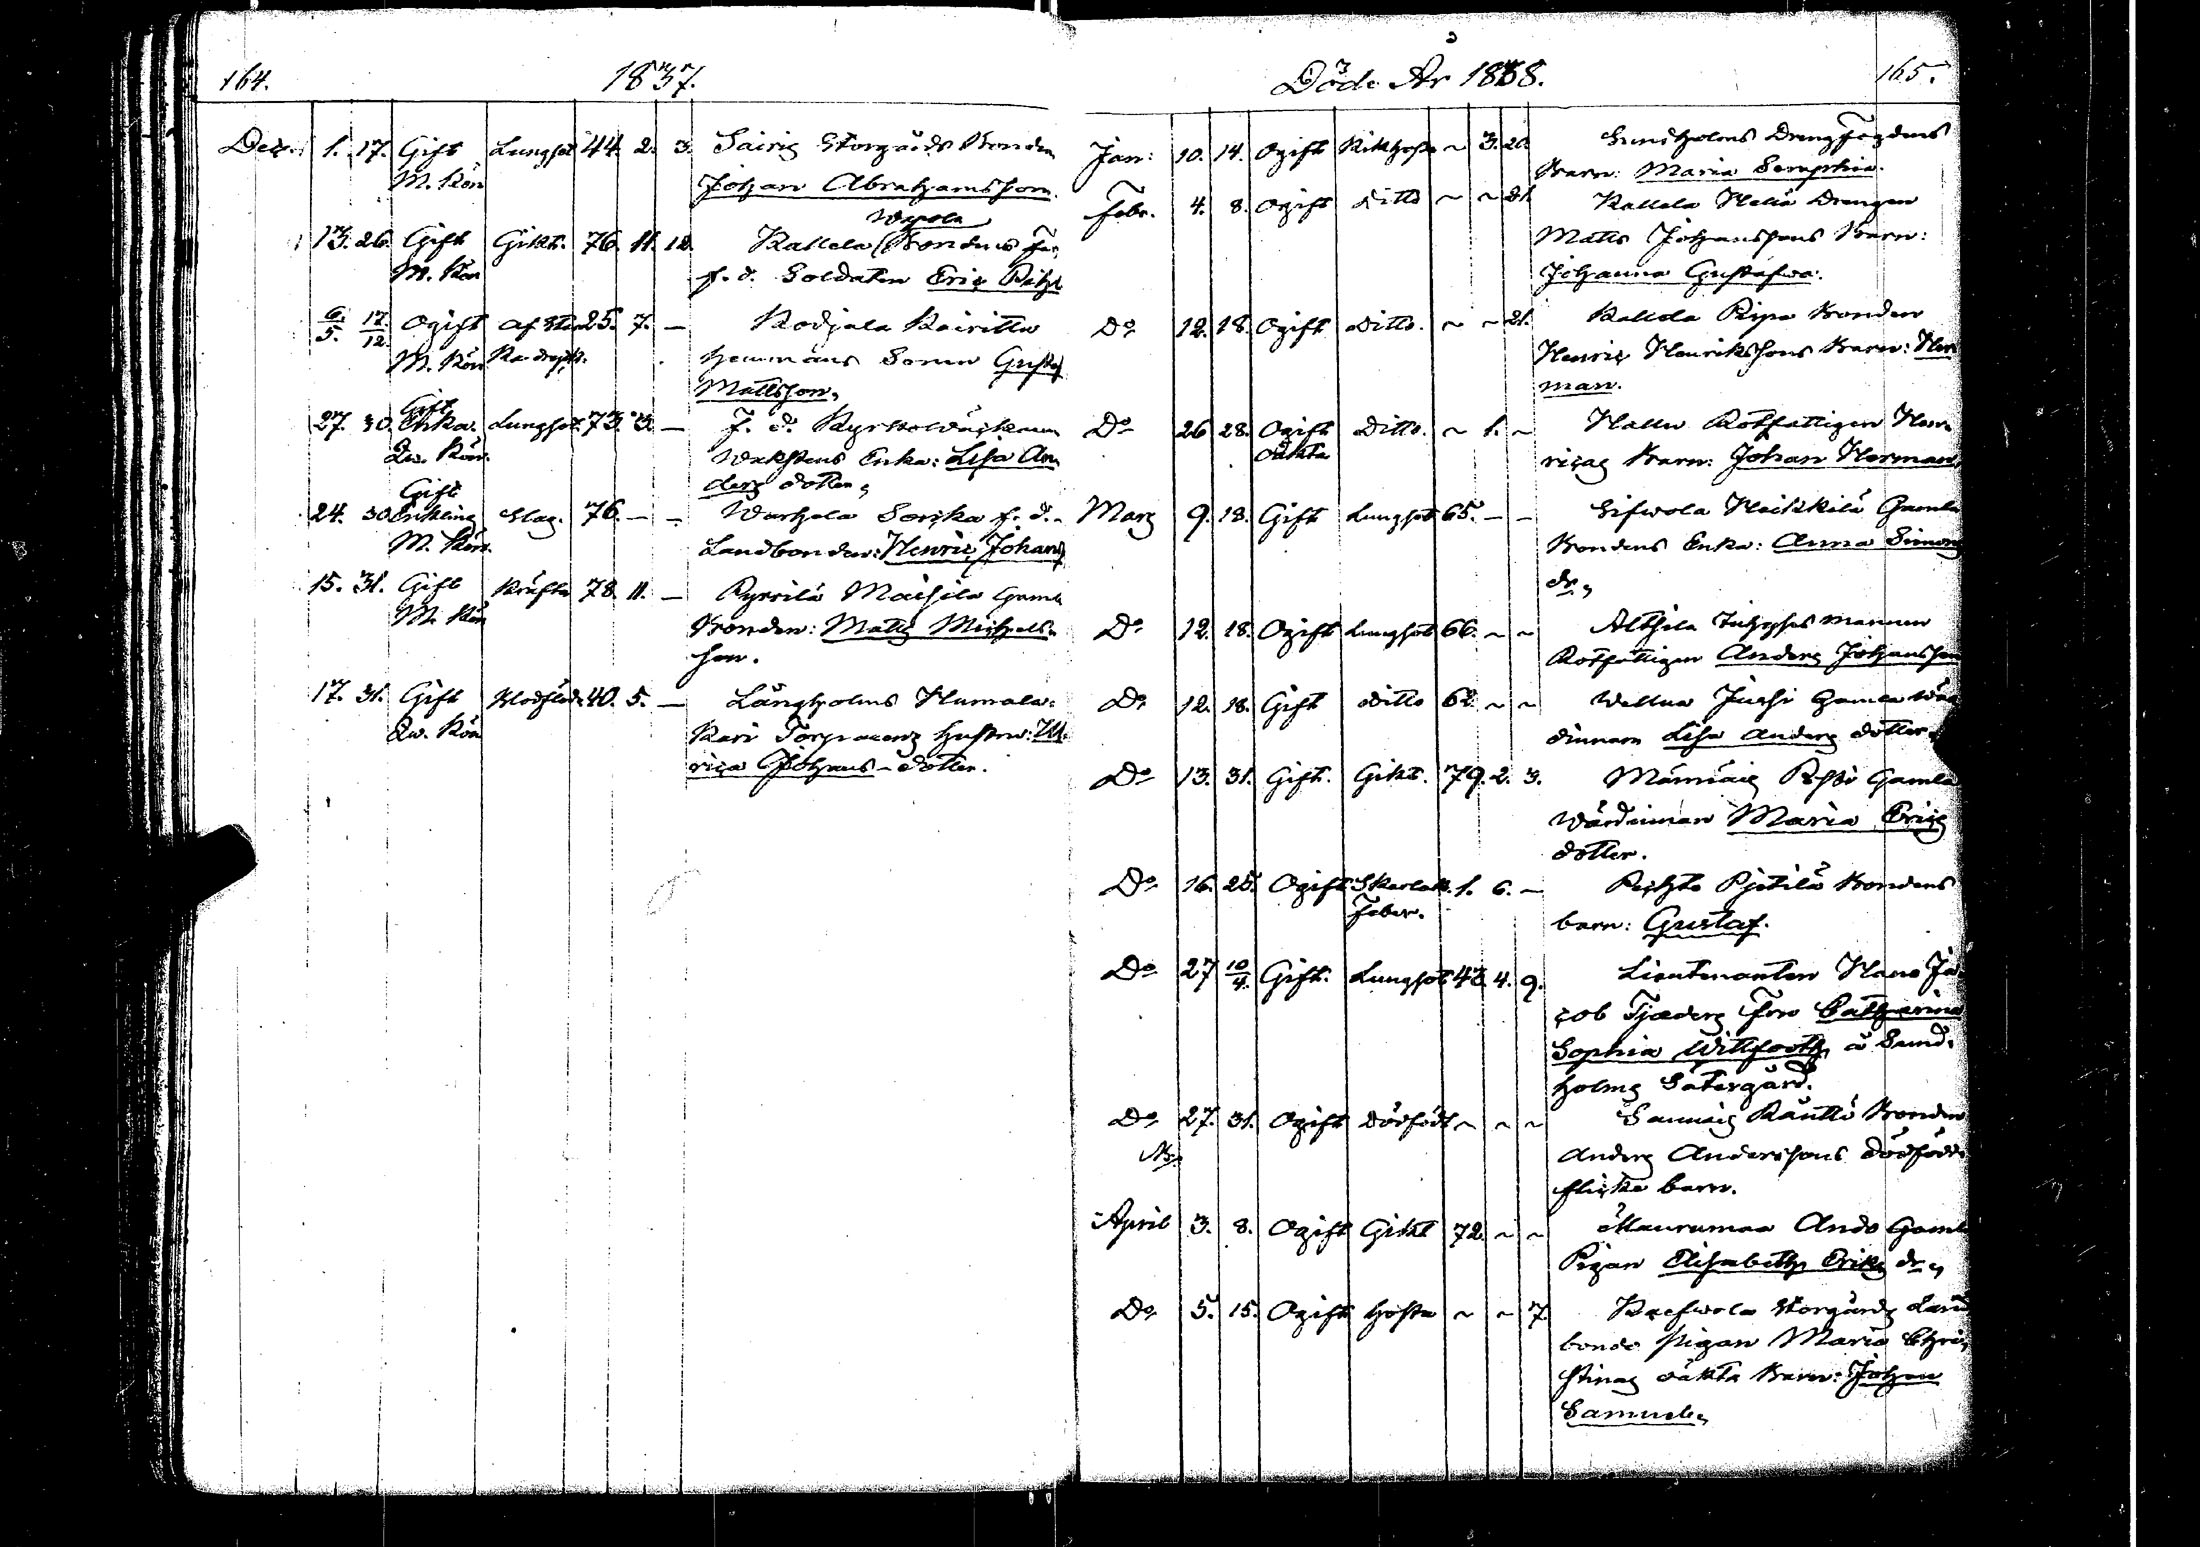 164. 1837.
Dec. 1. 17. Gift Lungsot 44. 2. 3. Sairis Storgårds Bonden
M. Kön Johan Abrahamsson.
Wepola
13. 26. Gift Gikt. 76. 11. 12. Kallela Bondens Far
M. Kön f. d. Soldaten Eric
6./5. 17/12 Ogift af 25. 7. — Kodjala Kairitto
M. Kön hemmans Sonen Gustaf
Mattsson,
Gift
27. 30. Enka. Lungsot. 73. 3. — F. d. Kyrkowäcktaren
Qw. Kön. Enka: Lisa An
ders dotter,
Gift
24. 30. Enkling Slag. 76. — — Warhela Sorkka f. d.
M. Kön. Landbonden: Henric Johans
15. 31. Gift Kräfta 78. 11. — Pyrrilä Maisila Gamla
M. Kön Bonden: Matts Michels-
son.
17. 31. Gift Blodflöde 40. 5. — Långholms Humala-
Qw. Kön Kari Torparens hustru: Ul-
rica Johans-dotter.

Döde År 1838. 165.
Jan: 10. 14. Ogift Kikhosta ~ 3. 20. Sundholms Dreng Fogdens
Barn: Maria Seraphia.
Febr. 4. 8. Ogift ditto ~ ~ 21. Kallela Heliä Drengen
Matts Johanssons Barn:
Johanna Gustafwa.
Do 12. 18. Ogift Ditto. ~ ~ 21. Kallela Ripa Bonden
Henric Henrikssons Barn: Her
man.
Do 26 28. Ogift Ditto. ~ 1. ~ Hallu Rotfattigen Hen-
oäkta ricas Barn: Johan Herman,
Mars 9. 18. Gift Lungsot 65. — — Sifwola Heikkilä Gamla
Bondens Enka: Anna Simons
dr,
Do 12. 18. Ogift Lungsot 66. ~ ~ Althila mannen
Rotfattigen Anders Johansson
Do 12. 18. Gift ditto 62 ~ ~ Wellua Jussi Gamla Wär
dinnan Lisa Anders dotter,
Do 13. 31. Gift. Gikt. 79. 2. 3. Männäis Gamla
Wärdinnan Maria Erics
dotter.
Do 16. 25. Ogift Skarlak. 1. 6. — Pietilä Bondens
Feber. barn: Gustaf.
Do 27 10/4. Gift. Lungsot 43. 4. 9. Lieutenanten Hans Ja-
cob Tjæders Fru Catharina
Sophia Wittfooth, å Sund-
holms Sätergård.
Do 27. 31. Ogift Dödfödt ~ ~ ~ Sannais Känttö Bonden
Anders Anderssons dödfödde
flicke barn.
April 3. 8. Ogift Gikt 72. ~ ~ Maurumaa Ando Gamla
Pigan Elisabeth Eriks dr,
Do 5. 15. Ogift hosta ~ ~ 7. Storgårds Land
bonde Pigan Maria Chri-
stinas oäkta Barn: Johan
Samuel,